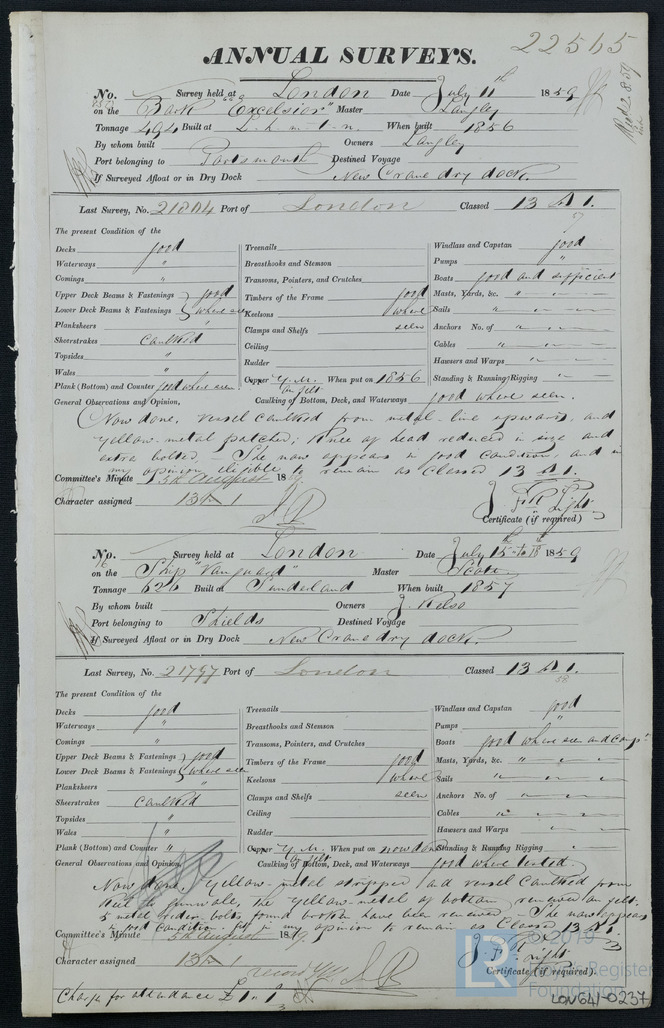 22515
ANNUAL SURVEYS.
No. Survey held at London Date July 11th 1859
on the Bark "Excelsior" Master Langley
Tonnage 494 Built at When built 1856
By whom built Owners Langley
Port belonging to Portsmouth Destined Voyage
If Surveyed Afloat or in Dry Dock New Crane dry dock.
Last Survey, No. Port of London Classed 13 A 1.
The present Condition of the
Decks good Treenails Windlass and Capstan good
Waterways " Breasthooks and Stemson Pumps "
Comings " Transoms, Pointers, and Crutches Boats good and sufficient
Upper Deck Beams & Fastenings good Timbers of the Frame good Masts, Yards, &c. " " "
Lower Deck Beams & Fastenings where seen Keelsons where Sails " " "
Planksheers " Clamps and Shelfs seen Anchors No. of " " "
Sheerstrakes Caulked Ceiling Cables " " "
Topsides " Rudder Hawsers and Warps " " "
Wales " Copper Y.M. on felt When put on 1856 Standing & Running Rigging " " "
Plank (Bottom) and Counter good where seen. Caulking of Bottom, Deck, and Waterways good where seen.
General Observations and Opinion,
Now done, vessel caulked from metal-line upwards, and
yellow-metal patched; Knee of head reduced in size and
extra bolted. - She now appears in good condition, and in
my opinion eligible to remain as Classed 13 A 1.
Committee's Minute 5th August 1859.
Character assigned 13 A 1
Certificate (if required)
No. Survey held at London Date July 15th to 18th 1859
on the Ship "Vanguard" Master Scott
Tonnage 626 Built at Sunderland When built 1857
By whom built Owners J. Kelso
Port belonging to Shields Destined Voyage
If Surveyed Afloat or in Dry Dock New Crane dry dock.
Last Survey, No. 21797 Port of London Classed 13 A 1.
The present Condition of the
Decks good Treenails Windlass and Capstan good
Waterways " Breasthooks and Stemson Pumps "
Comings " Transoms, Pointers, and Crutches Boats good where seen and comp.
Upper Deck Beams & Fastenings good Timbers of the Frame good Masts, Yards, &c. " " "
Lower Deck Beams & Fastenings where seen Keelsons where Sails " " "
Planksheers " Clamps and Shelfs seen Anchors No. of " " "
Sheerstrakes Caulked Ceiling Cables " " "
Topsides " Rudder Hawsers and Warps " " "
Wales " Copper Y.M. on felt When put on now done Standing & Running Rigging " "
Plank (Bottom) and Counter " Caulking of Bottom, Deck, and Waterways good where tested.
General Observations and Opinion,
Now done, Yellow-metal stripped and vessel caulked from
Keel to gunwale, the yellow-metal of bottom renewed on felt.
5 metal rider bolts found broken have been renewed - She now appears
in good condition, fit in my opinion to remain as Classed 13 A 1.
Committee's Minute 5th August 1859
Character assigned 13 A 1
Certificate (if required).
Charge for attendance £1 " 1
© 2019
Lloyd's Register
Foundation
LON641-0237